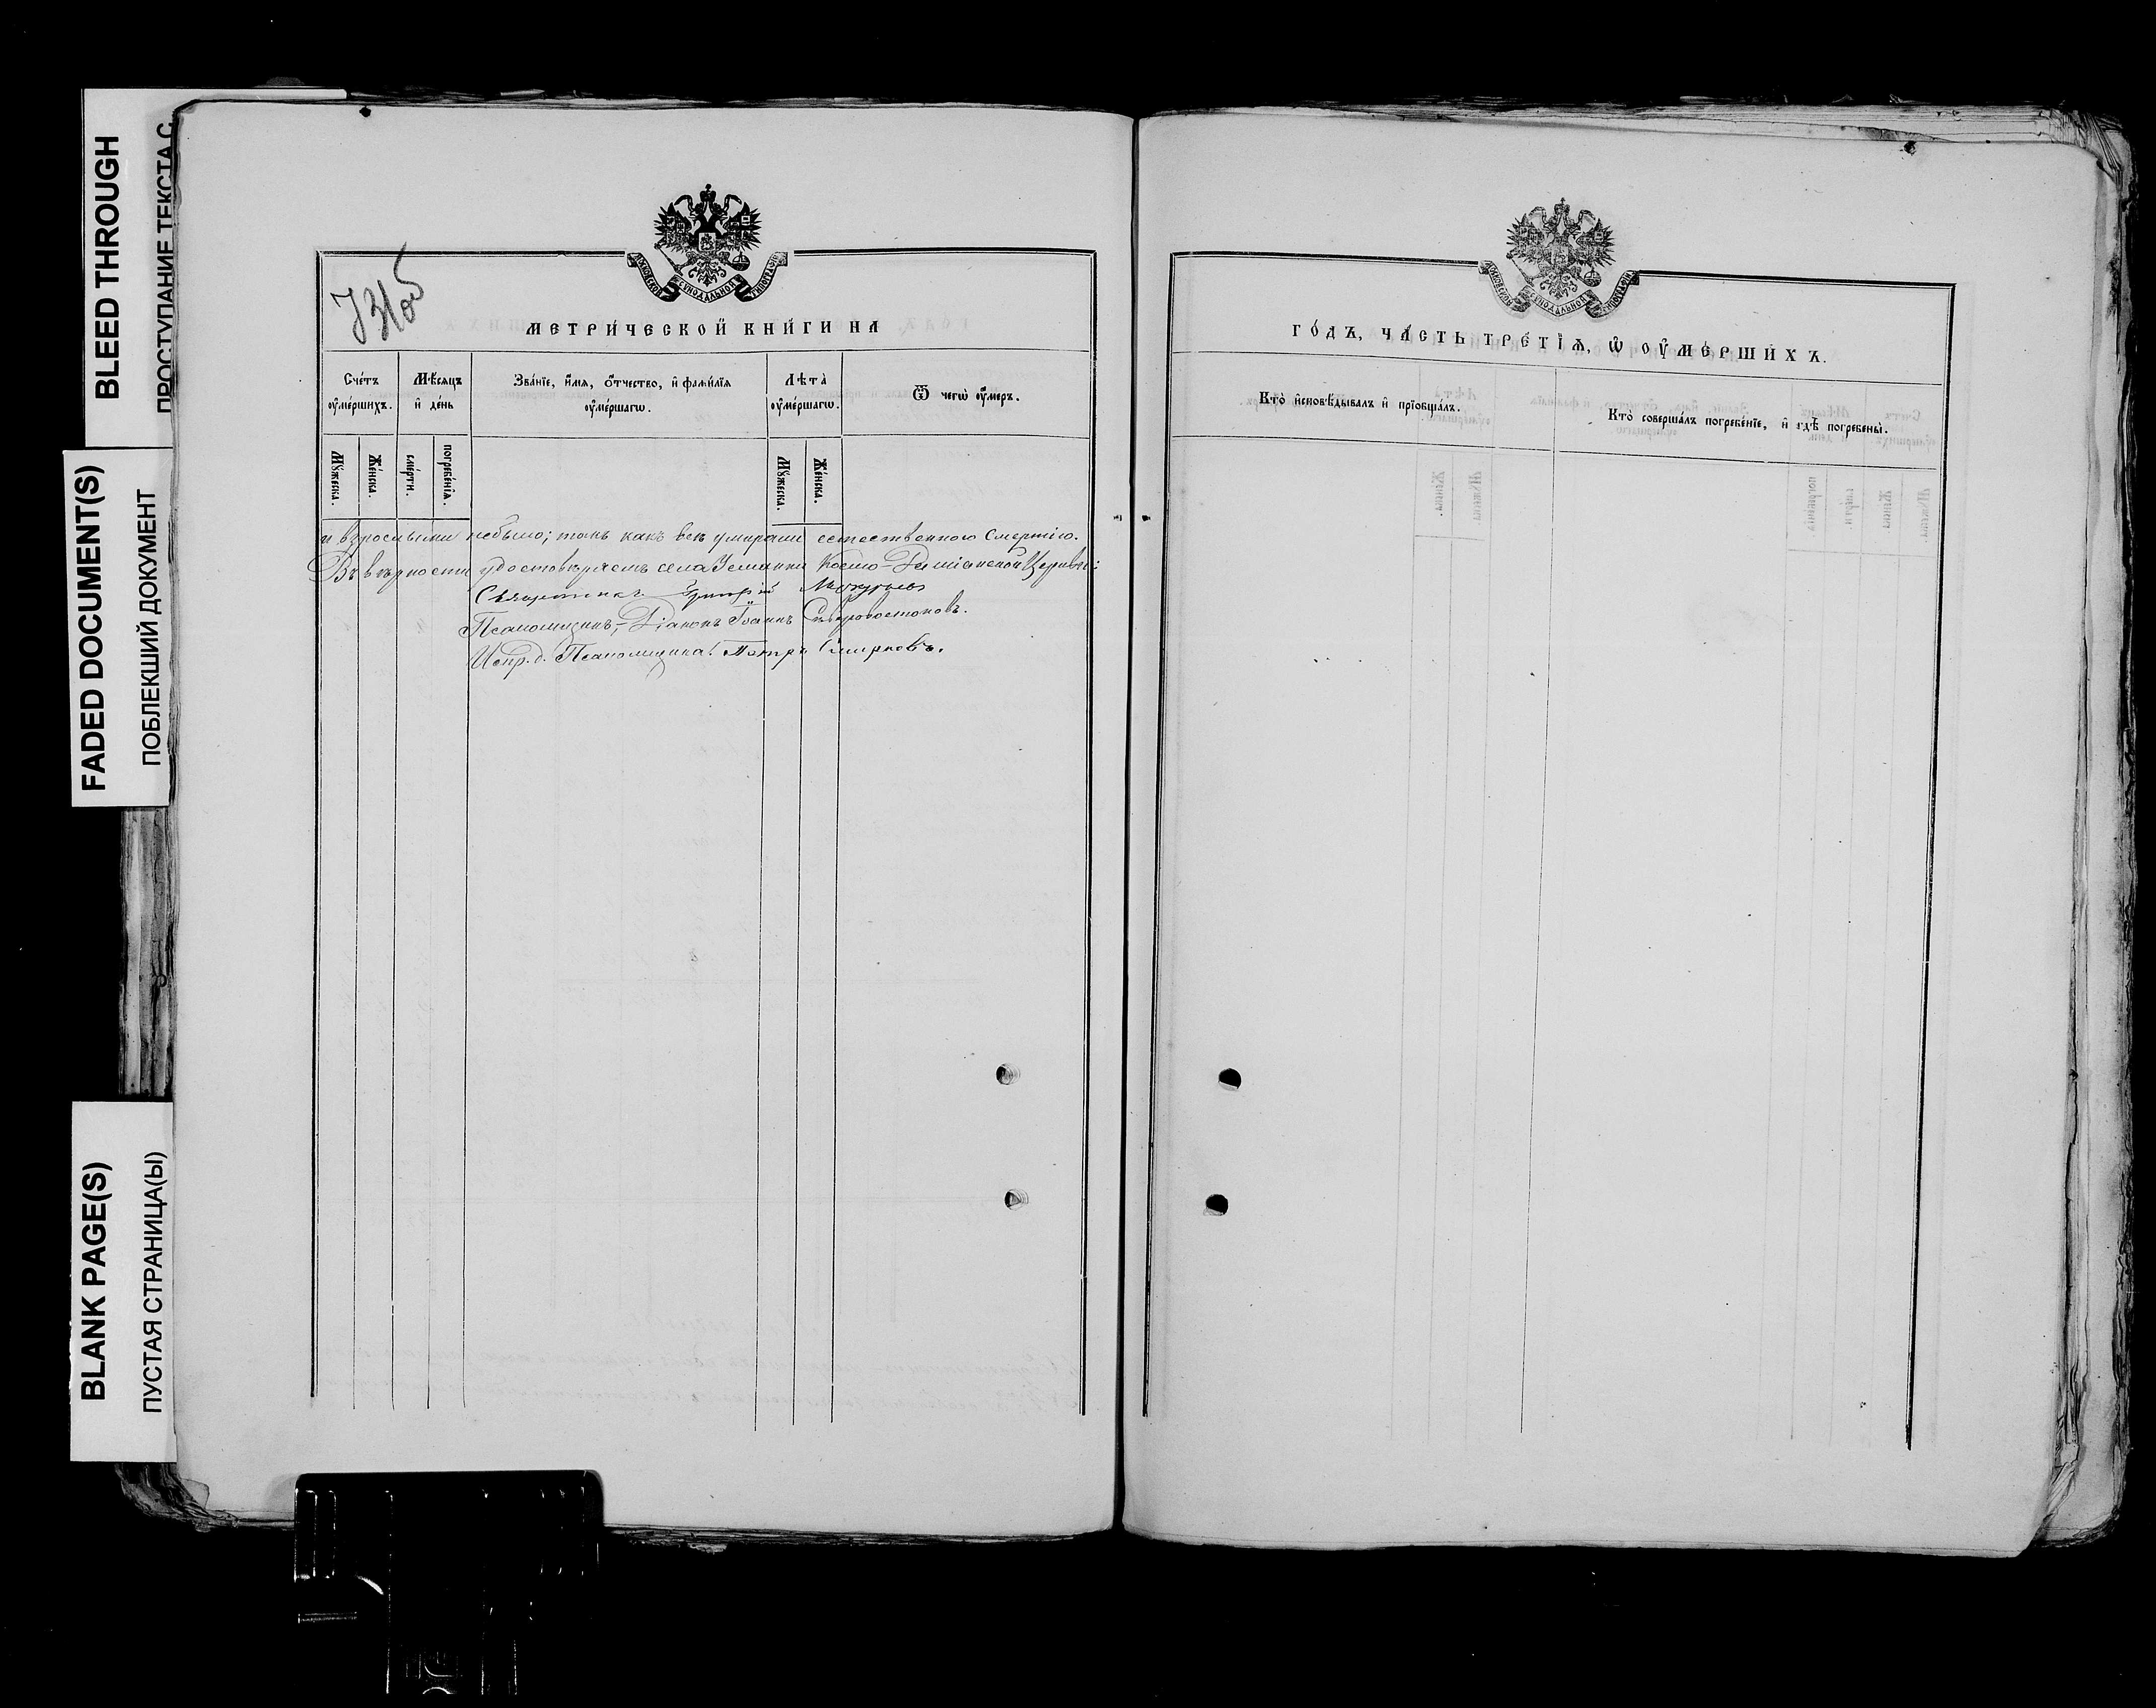 BLEED THROUGH
ПРОСТУПАНИЕ ТЕКСТА С
FADED DOCUMENT(S)
ПОБЛЕКШИЙ ДОКУМЕНТ
BLANK PAGE(S)
ПУСТАЯ СТРАНИЦА(Ы)
МОСКОВСКОЙ СУНОДАЛЬНОЙ ТИПОГРАФІИ
МЕТРИ́ЧЕСКОЙ КНИ́ГИ НА
Сче́тъ ᲂу҆ме́ршихъ.
Мѣ́сяцъ и҆ де́нь
Зва́нїе, и҆́мѧ, ѻ҆́тчество, и҆ фами́лїѧ ᲂу҆ме́ршагѡ.
Лѣта̀ ᲂу҆ме́ршагѡ.
Ѿ чегѡ̀ ᲂу҆́меръ.
Мꙋ́жеска.
Же́нска.
сме́рти.
погребе́нїѧ.
Мꙋ́жеска.
Же́нска.
и взрослыми небыло; такъ какъ всѣ умирали естественною смертію.
Въ вѣрности удостовѣряемъ села Усманки Космо-Даміанской Церкви:
Священникъ
Псаломщикъ, Діаконъ Іоаннъ Сѣверовостоковъ.
Испр. д. Псаломщика Петръ Смирновъ.
МОСКОВСКОЙ СУНОДАЛЬНОЙ ТИПОГРАФІИ
ГО́ДЪ, ЧА́СТЬ ТРЕ́ТЇѦ, Ѡ҆ ᲂУ҆МЕ́РШИХЪ.
Кто̀ и҆сповѣ́дывалъ и҆ прїобща́лъ.
Кто̀ соверша́лъ погребе́нїе, и҆ гдѣ̀ погребены̀.